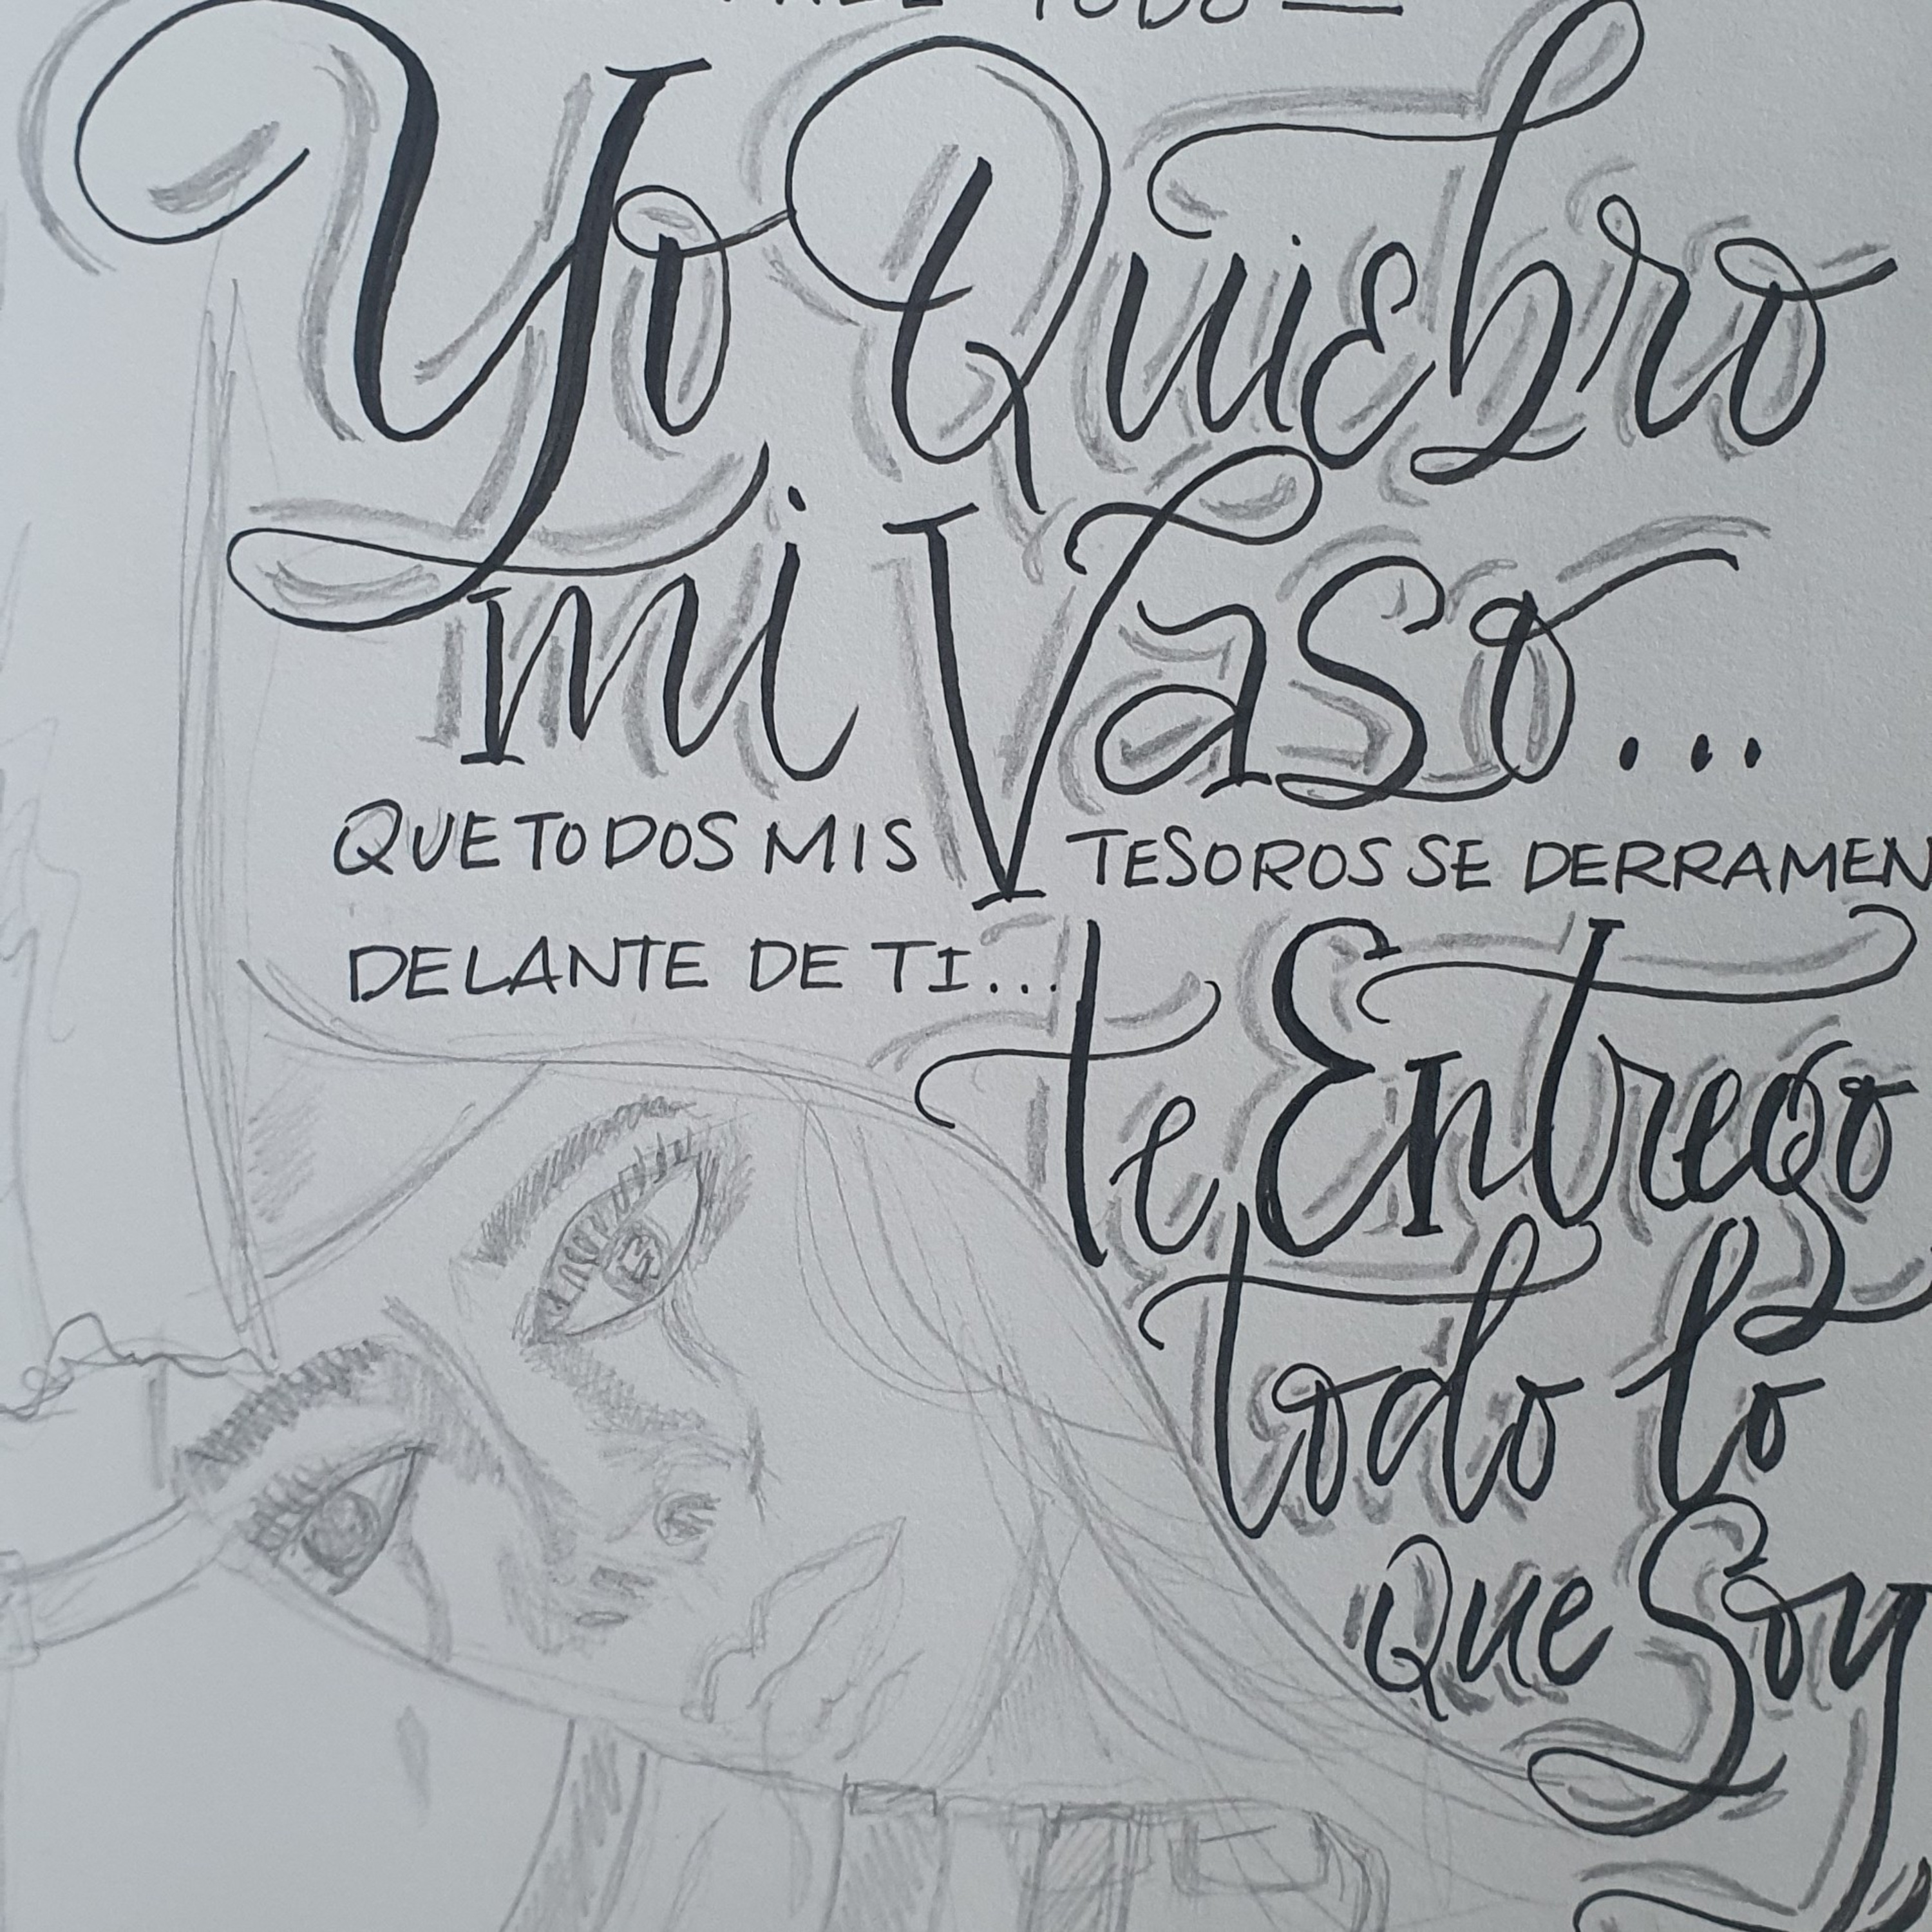 TODO —
Yo Quiebro
mi Vaso...
QUE TODOS MIS TESOROS SE DERRAMEN
DELANTE DE TI...
te Entrego
todo lo
Que Soy